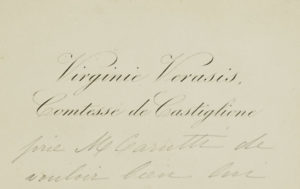 Virginie Verasis,
Comtesse de Castiglione
prie M Cariutti de
vouloir bien lui